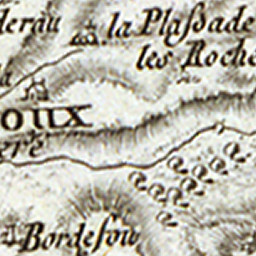 derau
la Plaſsade
les Roche
oux
ere
Bordeſou